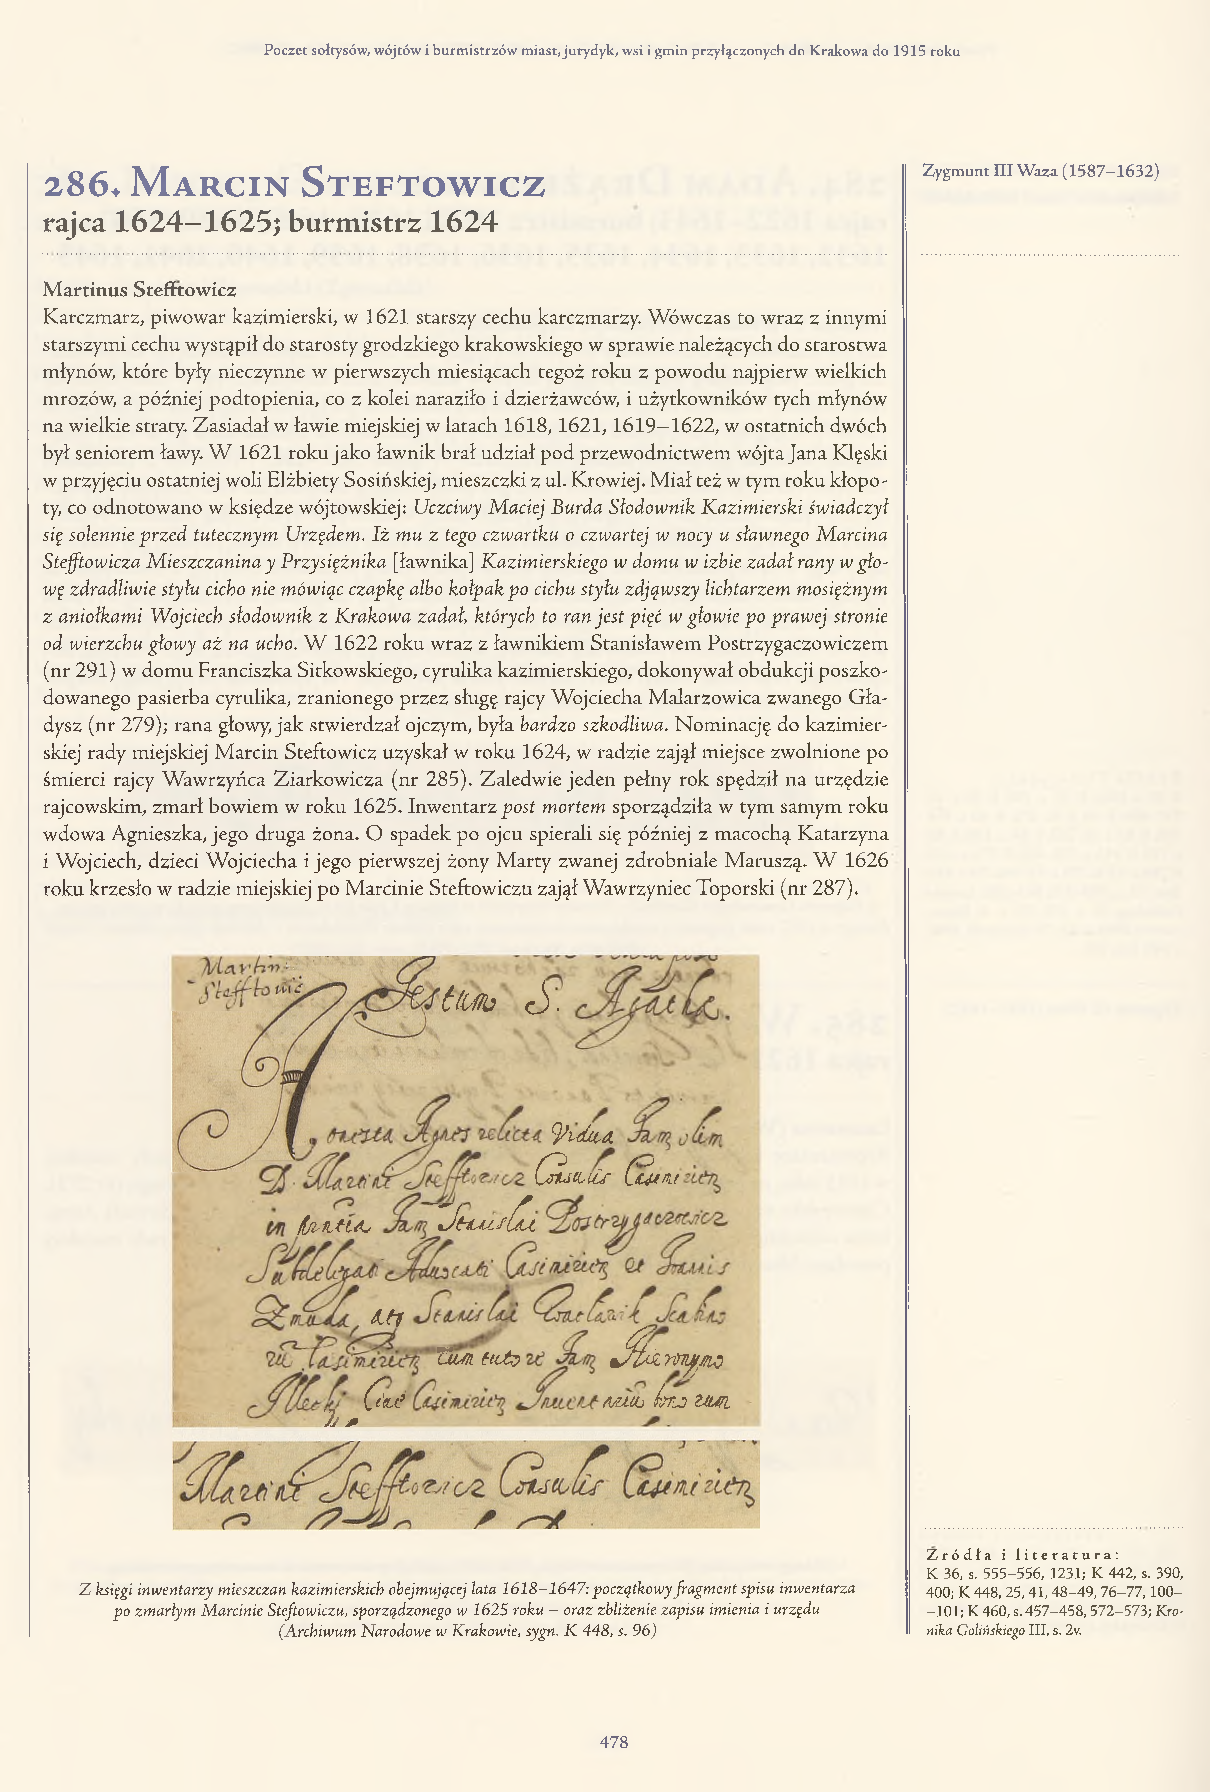 Poczet sołtysów, wójtów i burmistrzów miast, jurydyk, wsi i gmin przyłączonych do Krakowa do 1915 roku
286. Marcin Steftowicz
rajca 1624–1625; burmistrz 1624
Zygmunt III Waza (1587–1632)
Martinus Stefftowicz
Karczmarz, piwowar kazimierski, w 1621 starszy cechu karczmarzy. Wówczas to wraz z innymi
starszymi cechu wystąpił do starosty grodzkiego krakowskiego w sprawie należących do starostwa
młynów, które były nieczynne w pierwszych miesiącach tegoż roku z powodu najpierw wielkich
mrozów, a później podtopienia, co z kolei naraziło i dzierżawców, i użytkowników tych młynów
na wielkie straty. Zasiadał w ławie miejskiej w latach 1618, 1621, 1619–1622, w ostatnich dwóch
był seniorem ławy. W 1621 roku jako ławnik brał udział pod przewodnictwem wójta Jana Klęski
w przyjęciu ostatniej woli Elżbiety Sosińskiej, mieszczki z ul. Krowiej. Miał też w tym roku kłopo-
ty, co odnotowano w księdze wójtowskiej: Uczciwy Maciej Burda Słodownik Kazimierski świadczył
się solennie przed tutecznym Urzędem. Iż mu z tego czwartku o czwartej w nocy u sławnego Marcina
Stefftowicza Mieszczanina y Przysiężnika [ławnika] Kazimierskiego w domu w izbie zadał rany w gło-
wę zdradliwie styłu cicho nie mówiąc czapkę albo kołpak po cichu styłu zdjąwszy lichtarzem mosiężnym
z aniołkami Wojciech słodownik z Krakowa zadał, których to ran jest pięć w głowie po prawej stronie
od wierzchu głowy aż na ucho. W 1622 roku wraz z ławnikiem Stanisławem Postrzygaczowiczem
(nr 291) w domu Franciszka Sitkowskiego, cyrulika kazimierskiego, dokonywał obdukcji poszko-
dowanego pasierba cyrulika, zranionego przez sługę rajcy Wojciecha Malarzowica zwanego Gła-
dysz (nr 279); rana głowy, jak stwierdzał ojczym, była bardzo szkodliwa. Nominację do kazimier-
skiej rady miejskiej Marcin Steftowicz uzyskał w roku 1624, w radzie zajął miejsce zwolnione po
śmierci rajcy Wawrzyńca Ziarkowicza (nr 285). Zaledwie jeden pełny rok spędził na urzędzie
rajcowskim, zmarł bowiem w roku 1625. Inwentarz post mortem sporządziła w tym samym roku
wdowa Agnieszka, jego druga żona. O spadek po ojcu spierali się później z macochą Katarzyna
i Wojciech, dzieci Wojciecha i jego pierwszej żony Marty zwanej zdrobniale Maruszą. W 1626
roku krzesło w radzie miejskiej po Marcinie Steftowiczu zajął Wawrzyniec Toporski (nr 287).
Martin
Stefftowic
Festum S. Agathæ.
Honesta Agnes relicta Vidua Fam olim
D. Martini Stefftowicz Consulis Casimirien
in præsentia Fam Stanislai Postrzygaczowicz
Subdelegati Advocati Casimirien et
Zmuda, Stanislai
Casimirien cum tutore Fam Hieronymo
Casimirien Inuentariu bonorum
Martini Stefftowicz Consulis Casimirien
Z księgi inwentarzy mieszczan kazimierskich obejmującej lata 1618–1647: początkowy fragment spisu inwentarza
po zmarłym Marcinie Steftowiczu, sporządzonego w 1625 roku – oraz zbliżenie zapisu imienia i urzędu
(Archiwum Narodowe w Krakowie, sygn. K 448, s. 96)
Źródła i literatura:
K 36, s. 555–556, 1231; K 442, s. 390,
400; K 448, 25, 41, 48–49, 76–77, 100–
–101; K 460, s. 457–458, 572–573; Kro-
nika Golińskiego III, s. 2v.
478